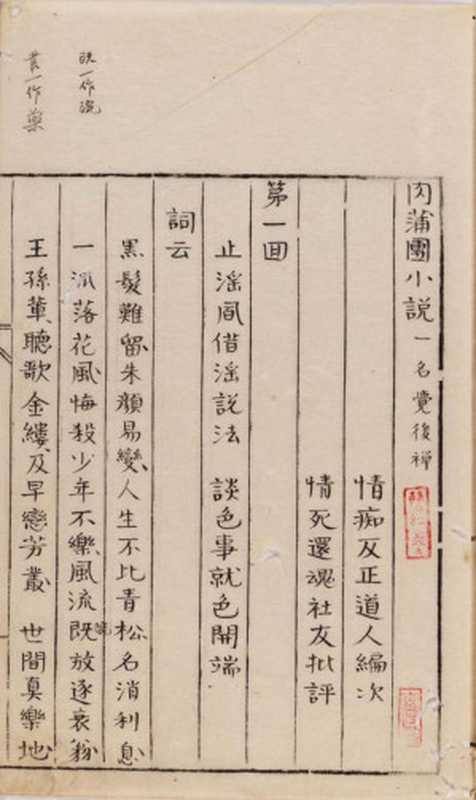 肉蒲團小説 一名覺後禪
情痴反正道人編次
情死還魂社友批評
第一回
止滛風借滛説法 談色事就色開端
詞云
黑髮難留、朱顏易變、人生不比青松、名消利息、
一派落花風、悔殺少年不樂、風流既放逐衰翁、
王孫輩、聽歌金縷、及早戀芳叢、 世間真樂地
一作
一作藥